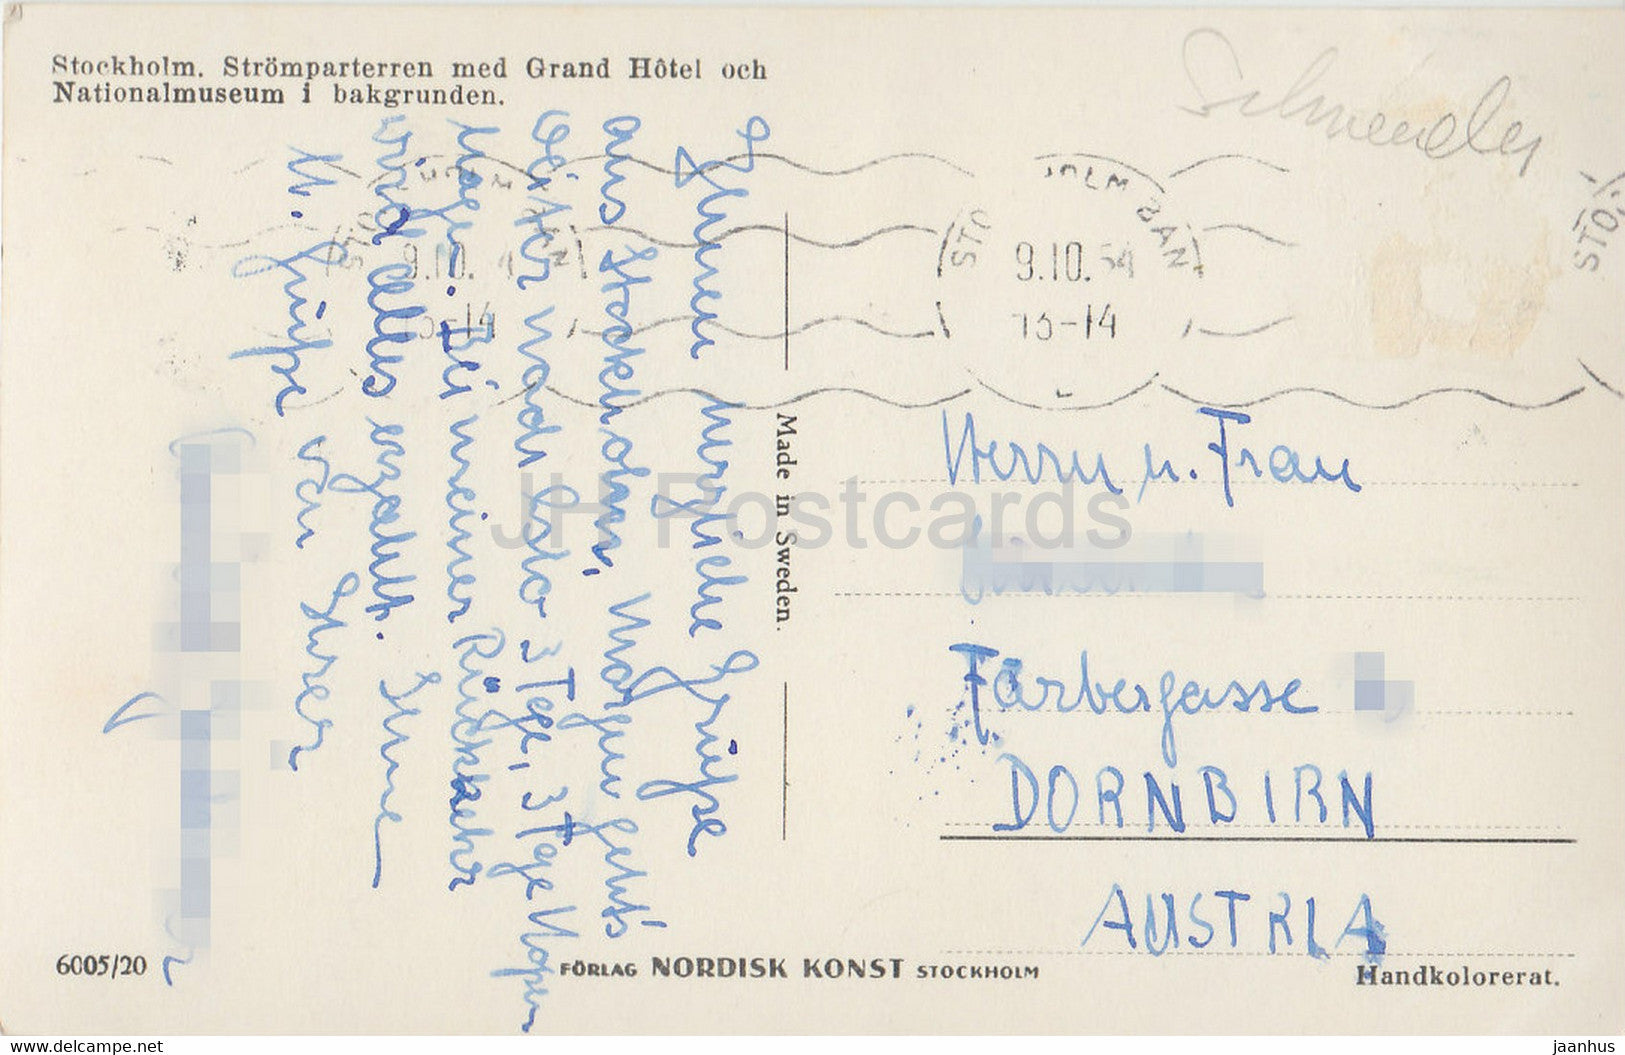 Stockholm. Strömparterren med Grand Hôtel och
Nationalmuseum i bakgrunden.
STO OLM BAN
9.10.54
13-14
STO
STO
9.10.
13-14
BAN
Ihnen herzliche Grüße
aus Stockholm, Morgen geht's
weiter nach Oslo 3 Tage, 3 Tage Kopen
hagen. Bei meiner Rückkehr
wird alles erzählt. Ihre
H. Grüße von Ihrer
Made in Sweden.
Herrn u. Frau
Färbergasse
DORNBIRN
AUSTRIA
JH Postcards
6005/20
FÖRLAG NORDISK KONST STOCKHOLM
Handkolorerat.
www.delcampe.net
jaanhus